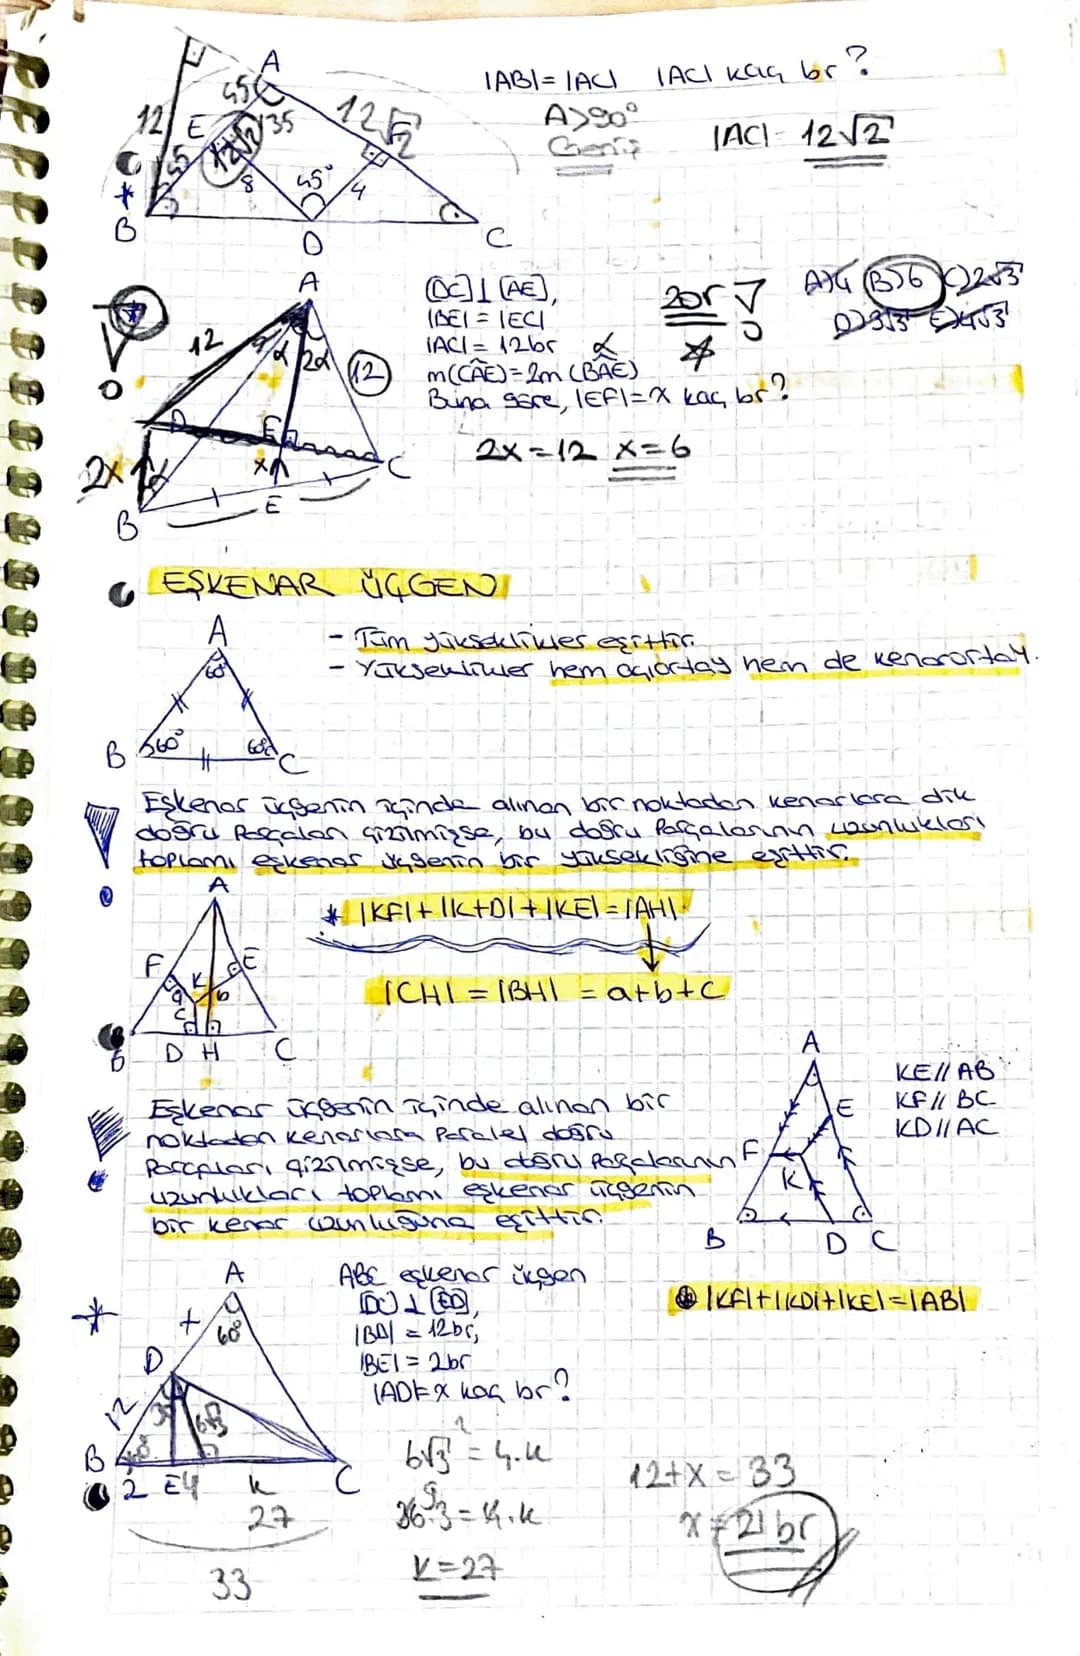 |AB|=|AC| |AC| kaç br?
A>90°
Geniş
|AC| = 12√2
A
45
135
12√2
12
E
45
12√2
8
45°
4
B
D
C
[DC]⊥[AE],
|BE|=|EC|
|AC|=12br
m(CÂE)=2m(BÂE)
Buna göre, |EF|=x kaç br?
2x=12 x=6
zor
A)4 B)6 C)2√3
D)3√3 E)4√3
A
12
α
2α
12
D
F
C
2x
x
E
B
EŞKENAR ÜÇGEN
A
60°
B
60°
60°
C
- Tüm yükseklikler eşittir.
- Yükseklikler hem açıortay hem de kenarortay.
Eşkenar üçgenin içinde alınan bir noktadan kenarlara dik
doğru parçaları çizilmişse, bu doğru parçalarının uzunlukları
toplamı eşkenar üçgenin bir yüksekliğine eşittir.
* |KF|+|K+D|+|KE|=|AH|
|CH| = |BH| = a+b+c
A
F
E
K
a
b
c
B
D H
C
Eşkenar üçgenin içinde alınan bir
noktadan kenarlara paralel doğru
parçaları çizilmişse, bu doğru parçalarının
uzunlukları toplamı eşkenar üçgenin
bir kenar uzunluğuna eşittir.
A
KE//AB
KF//BC
KD//AC
E
F
K
B
D C
|KF|+|KD|+|KE|=|AB|
ABC eşkenar üçgen
[DC]⊥[ED],
|BD| = 12br,
|BE| = 2br
|AD|=x kaç br?
A
60°
x
D
12
30
6√3
B
60°
2 E 4 k C
27
33
6√3² = 4.k
36.3 = 4.k
9
k=27
12+x = 33
x = 21 br